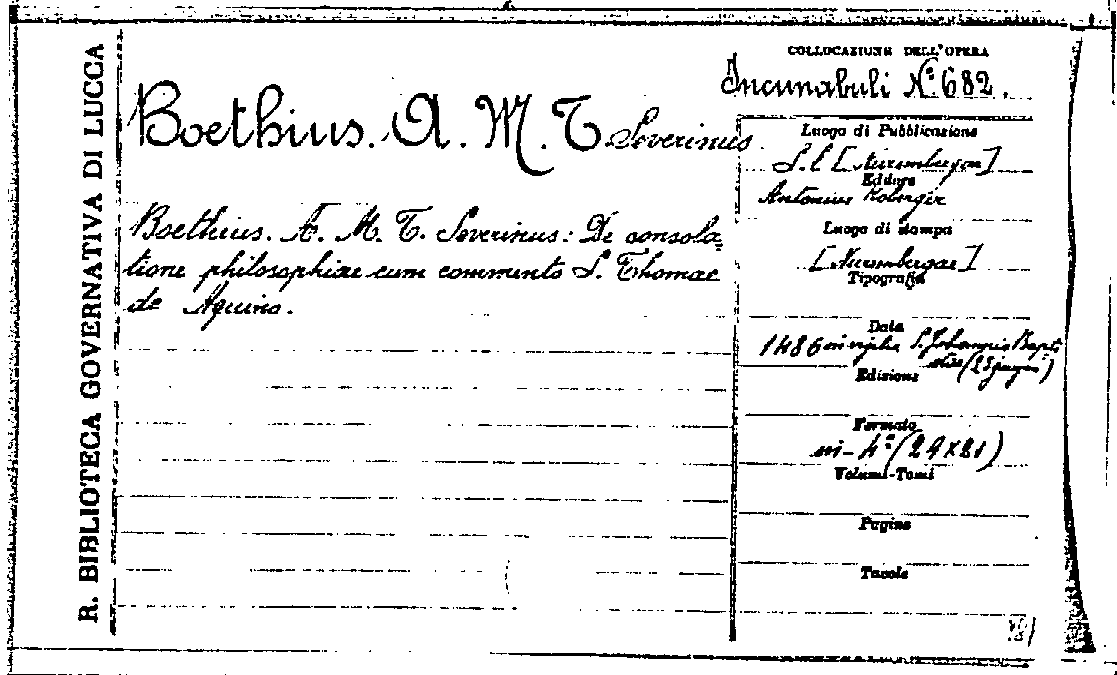 R. BIBLIOTECA GOVERNATIVA DI LUCCA
COLLOCAZIONE DELL'OPERA
Incunabuli Nº 682.
Boethius. A. M. T. Severinus.
Boethius. A. M. T. Severinus: De consola=
tione philosophiae cum commento S. Thomae
de Aquino.
Luogo di Pubblicazione
S. l. [Nurembergae]
Editore
Antonius Koberger
Luogo di stampa
[Nurembergae]
Tipografia
Data
1486 in vigilia S. Johannis Bapti
stae (23 giugno)
Edizione
Formato
in-4º (29x21)
Volumi-Tomi
Pagine
Tavole